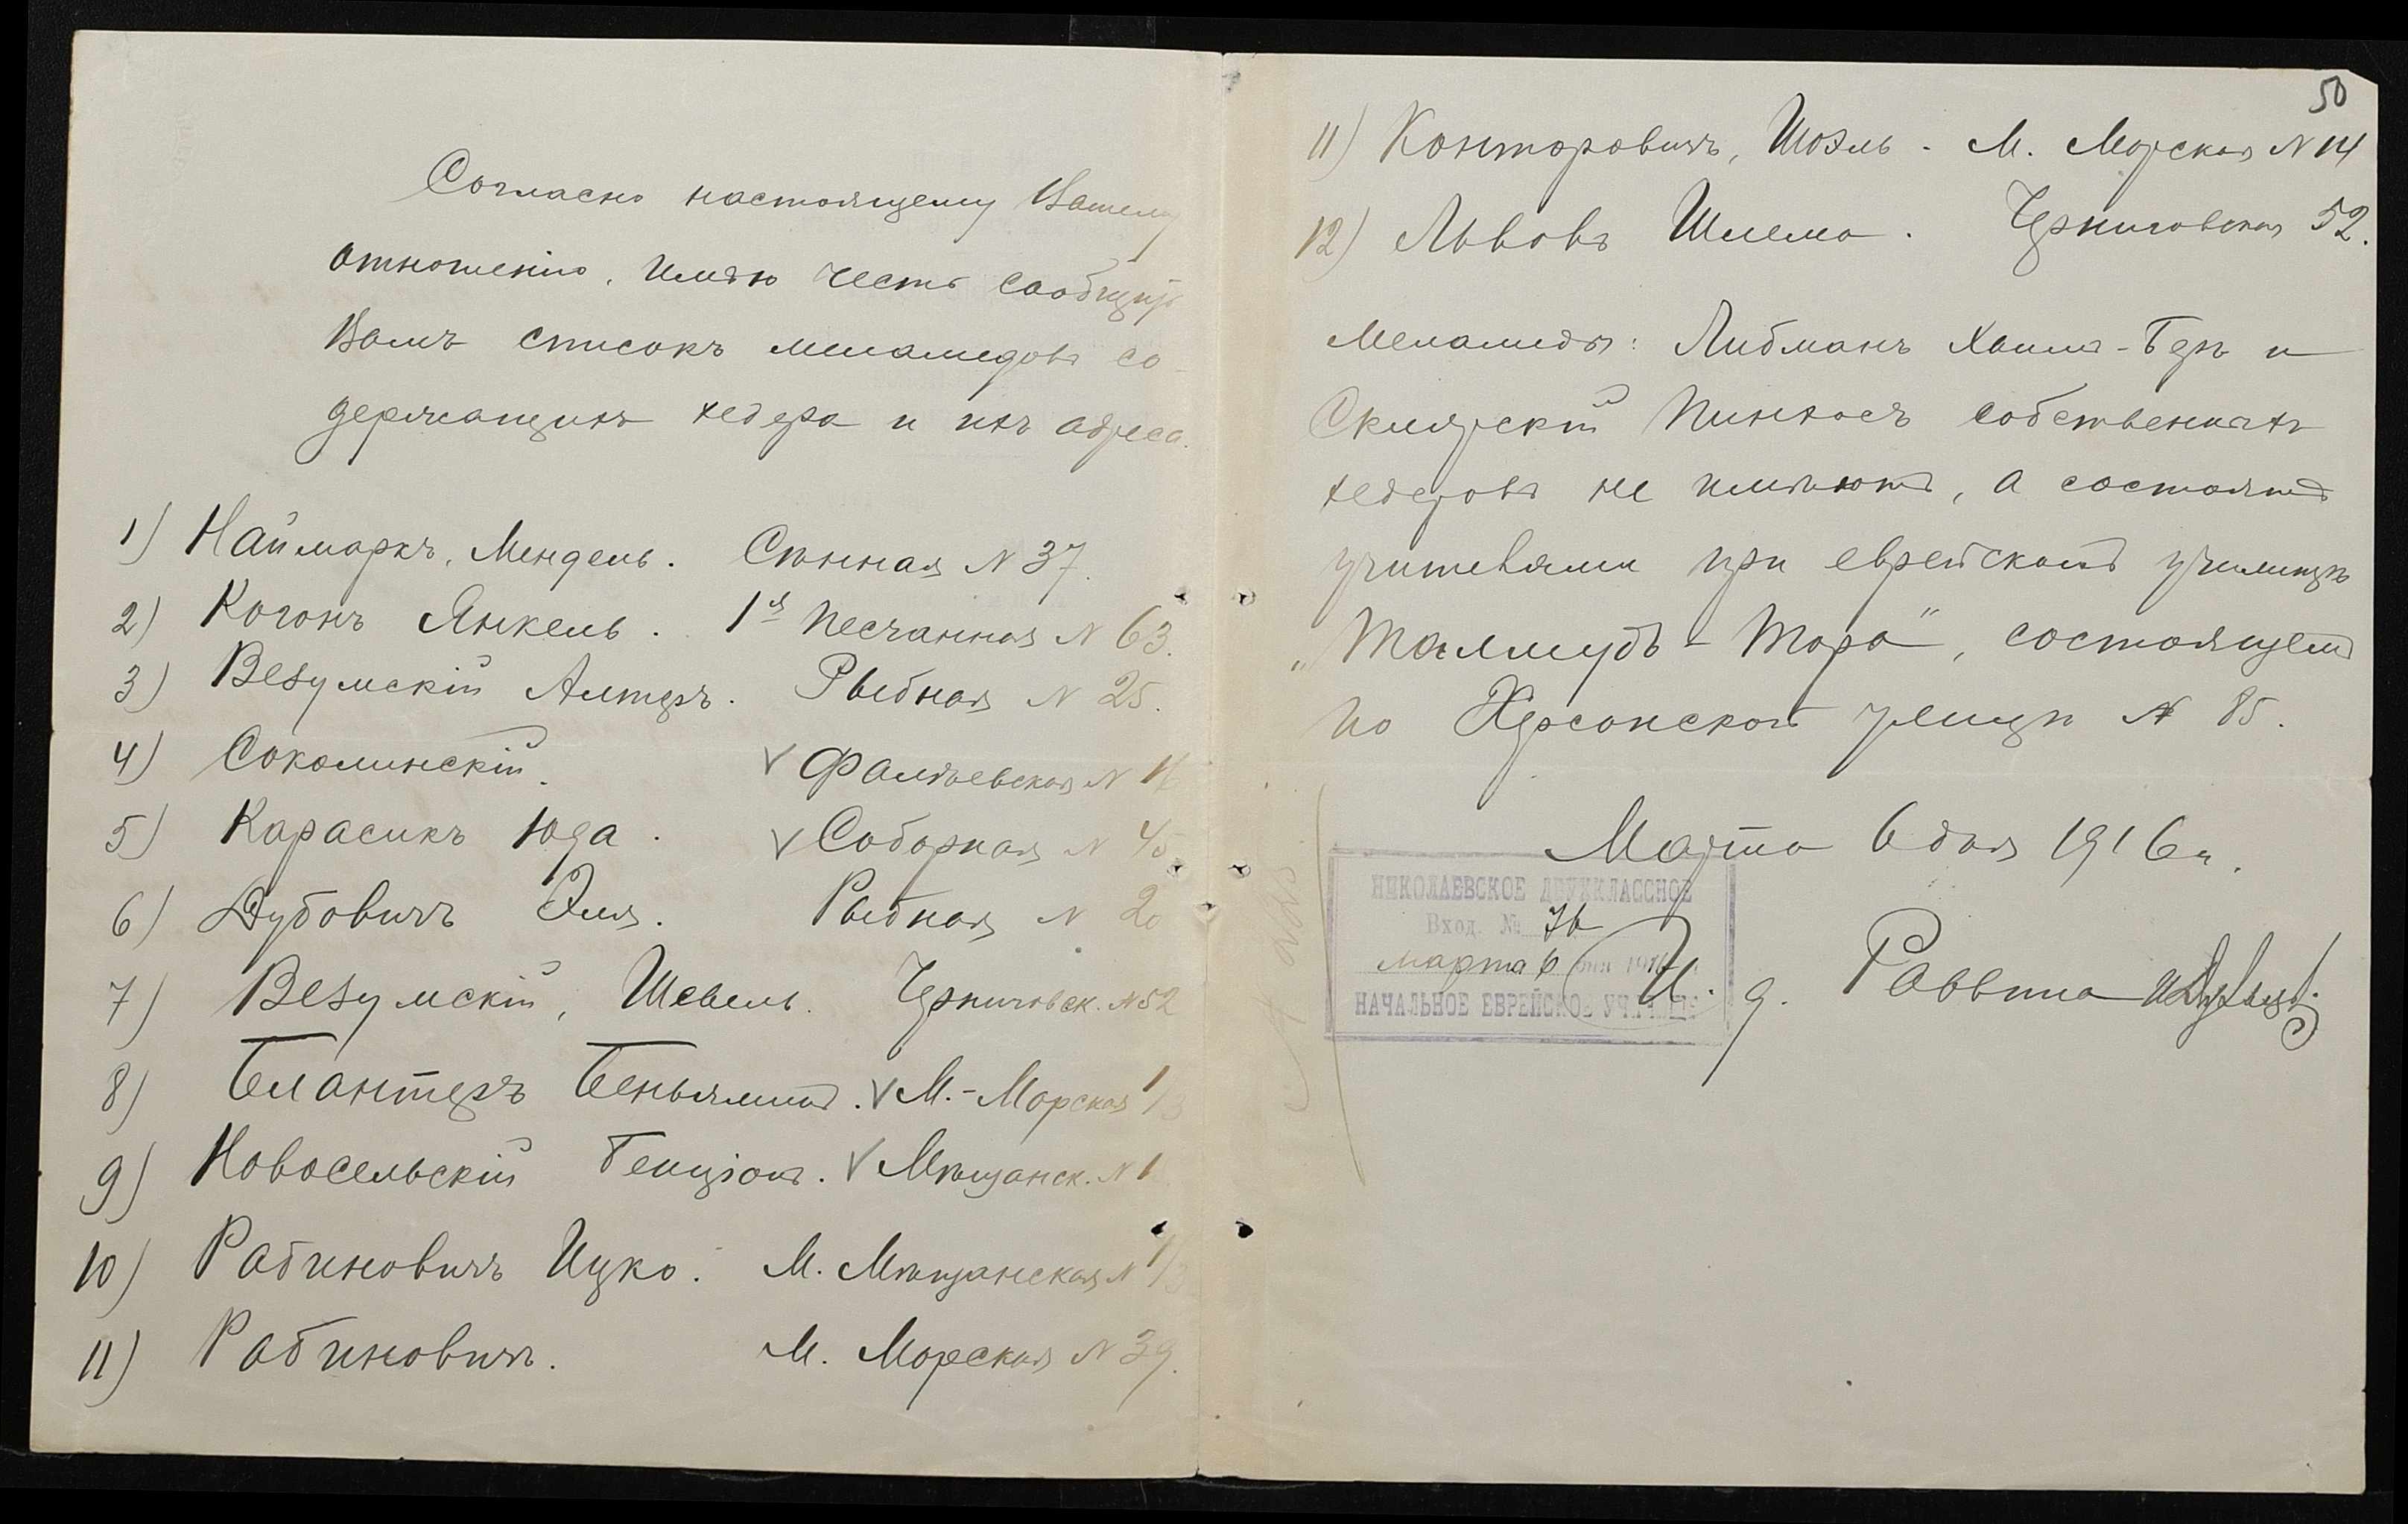 Согласно настоящему Вашему
отношенію, имѣю честь сообщить
Вамъ списокъ меламедовъ со-
держащихъ хедера и ихъ адреса.
1) Наймаркъ, Мендель. Сѣнная N 37.
2) Когонъ Янкель. 1я Песчанная N 63.
3) Везумскій Алтеръ. Рыбная N 25.
4) Соколинскій. √ Фалѣевская N
5) Карасикъ Юда. √ Соборная N 45
6) Дубовичъ Эля. Рыбная N 20
7) Везумскій, Шевель. Черниговск. N 52
8) Блантеръ Беньяминъ. √ М.-Морская 1/3
9) Новосельскій Бенціонъ. √ Мѣщанск. N 1
10) Рабиновичъ Ицко. М. Мѣщанская N 1/3
11) Рабиновичъ. М. Морская N 39.
50
11) Конторовичъ, Шоэль - М. Морская N 14
12) Львовъ Шлема. Черниговская 52.
Меламеды: Либманъ Хаимъ-Беръ и
Склярскій Пинхосъ собственныхъ
хедеровъ не имѣютъ, а состоятъ
учителями при еврейскомъ училищѣ
„Талмудъ-Тора", состоящемъ
по Херсонской улицѣ N 85.
Марта 6 дня 1916 г.
НИКОЛАЕВСКОЕ ДВУХКЛАССНОЕ
Вход. № 76
Марта 6 дня 1916
НАЧАЛЬНОЕ ЕВРЕЙСКОЕ УЧИЛИЩЕ
И. д. Раввина